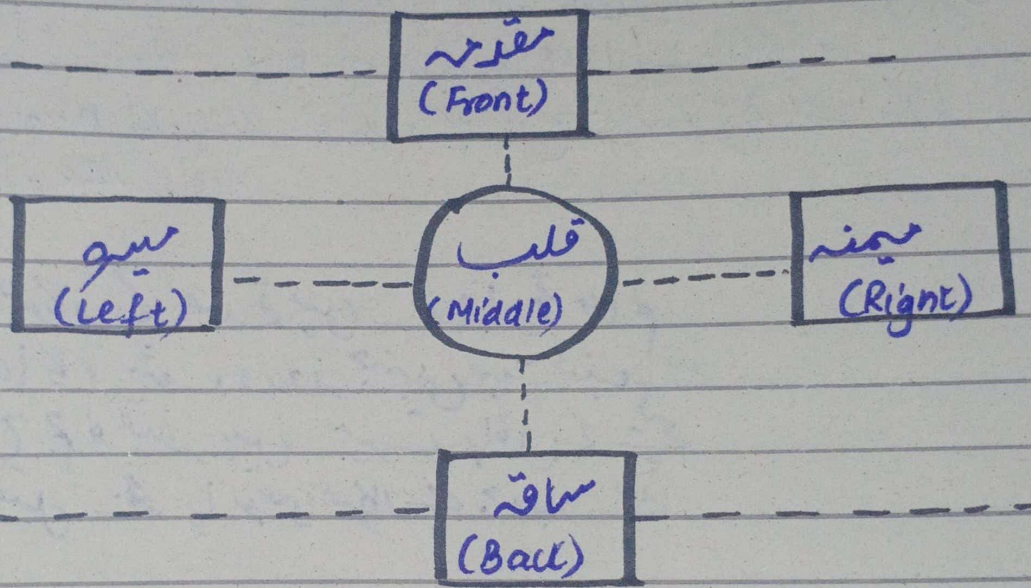 مقدمہ
(Front)
میسرہ
(Left)
قلب
(Middle)
میمنہ
(Right)
ساقہ
(Back)